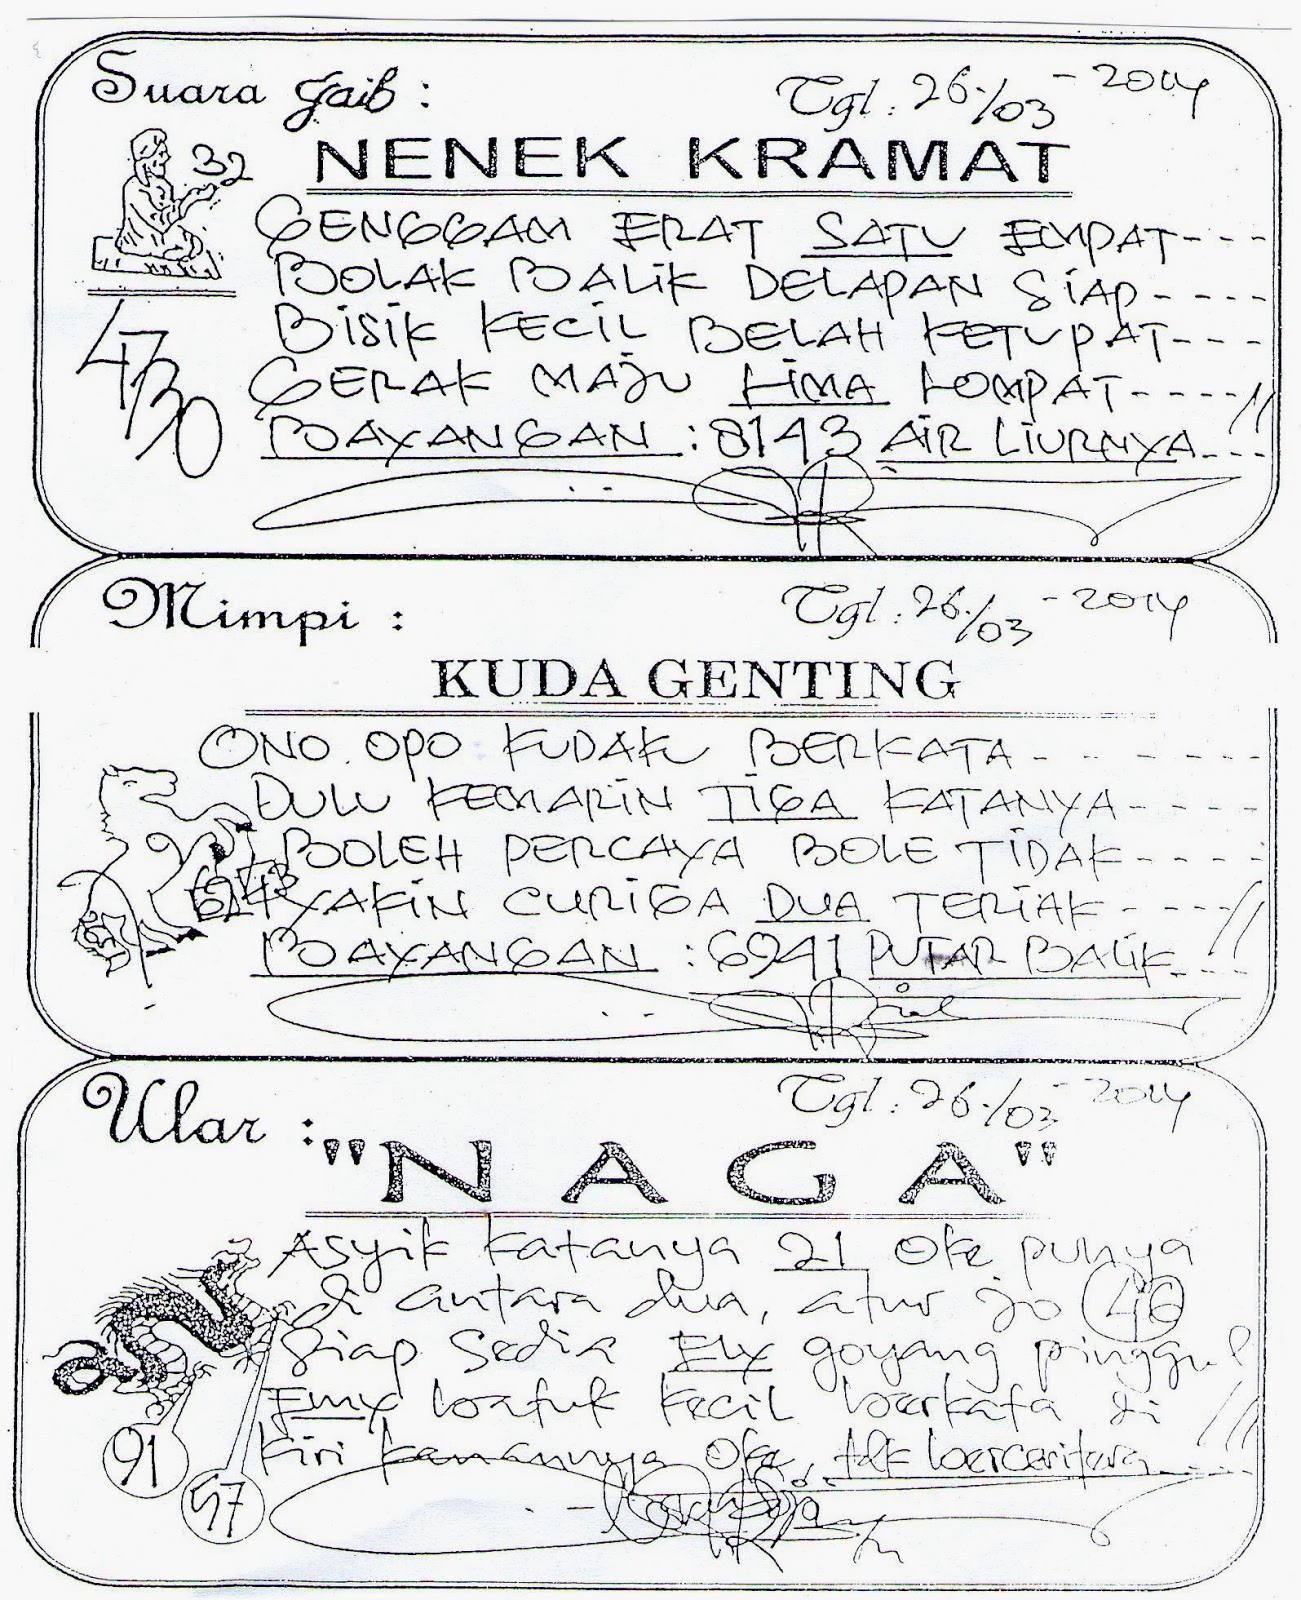 Suara Gaib :
Tgl : 26/03-2014
NENEK KRAMAT
32
GENGGAM ERAT SATU EMPAT----
BOLAK BALIK DELAPAN SIAP----
BISIK KECIL BELAH KETUPAT----
GERAK MAJU LIMA LOMPAT----//
4730
BAYANGAN : 8143 AIR LIURNYA----
Mimpi :
Tgl : 26/03-2014
KUDA GENTING
ONO OPO KUDAKU BERKATA------
DULU KEMARIN TIGA KATANYA----
BOLEH PERCAYA BOLE TIDAK----
YAKIN CURIGA DUA TERIAK----//
BAYANGAN : 6941 PUTAR BALIK----
Ular :
Tgl : 26/03-2014
"NAGA"
Asyik katanya 21 oke punya
di antara dua, atur jo 46
Siap sedia goyang pinggul
batuk kecil berkata di
kiri kanannya oke, tdk bercerita----
91
57